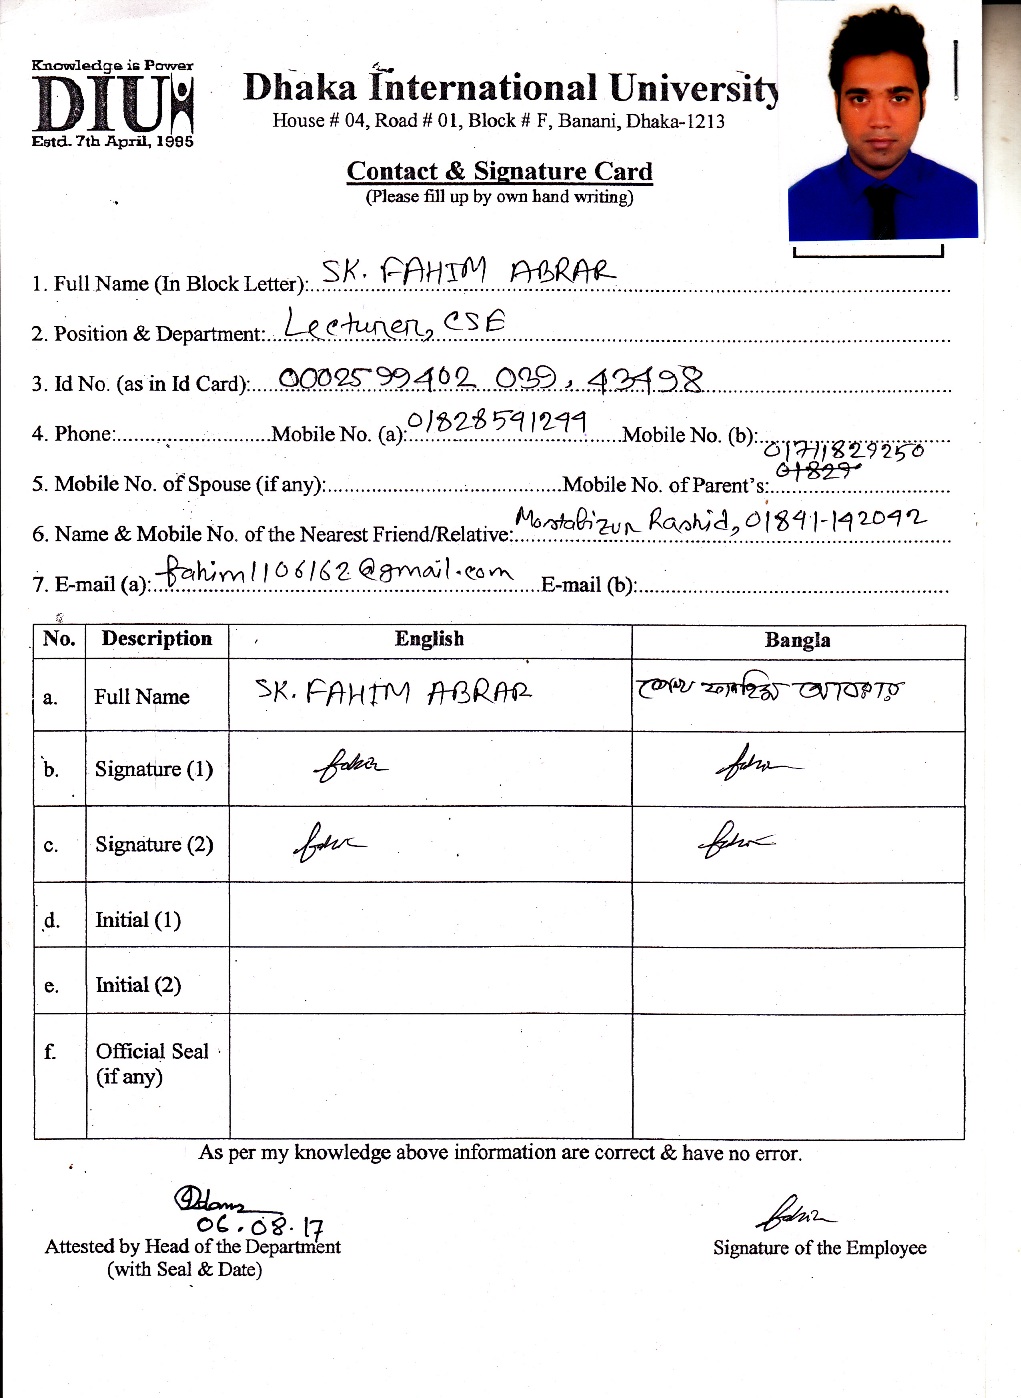 Knowledge is Power
DIU
Estd. 7th April, 1995
Dhaka International University
House # 04, Road # 01, Block # F, Banani, Dhaka-1213
Contact & Signature Card
(Please fill up by own hand writing)
1. Full Name (In Block Letter): SK. FAHIM ABRAR
2. Position & Department: Lecturer, CSE
3. Id No. (as in Id Card): 0002599402 039, 43498
4. Phone: Mobile No. (a): 01828591299 Mobile No. (b): 01711829250
5. Mobile No. of Spouse (if any): Mobile No. of Parent's: 01829
6. Name & Mobile No. of the Nearest Friend/Relative: Mostafizur Rashid, 01841-142042
7. E-mail (a): fahim1106162@gmail.com E-mail (b):
No. Description English Bangla
a. Full Name SK. FAHIM ABRAR
b. Signature (1)
c. Signature (2)
d. Initial (1)
e. Initial (2)
f. Official Seal
(if any)
As per my knowledge above information are correct & have no error.
06.08.17
Attested by Head of the Department
(with Seal & Date)
Signature of the Employee